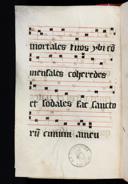 mortales tuos ybi cō
mensales coheredes
et sodales fac sancto
rū ciuium amen